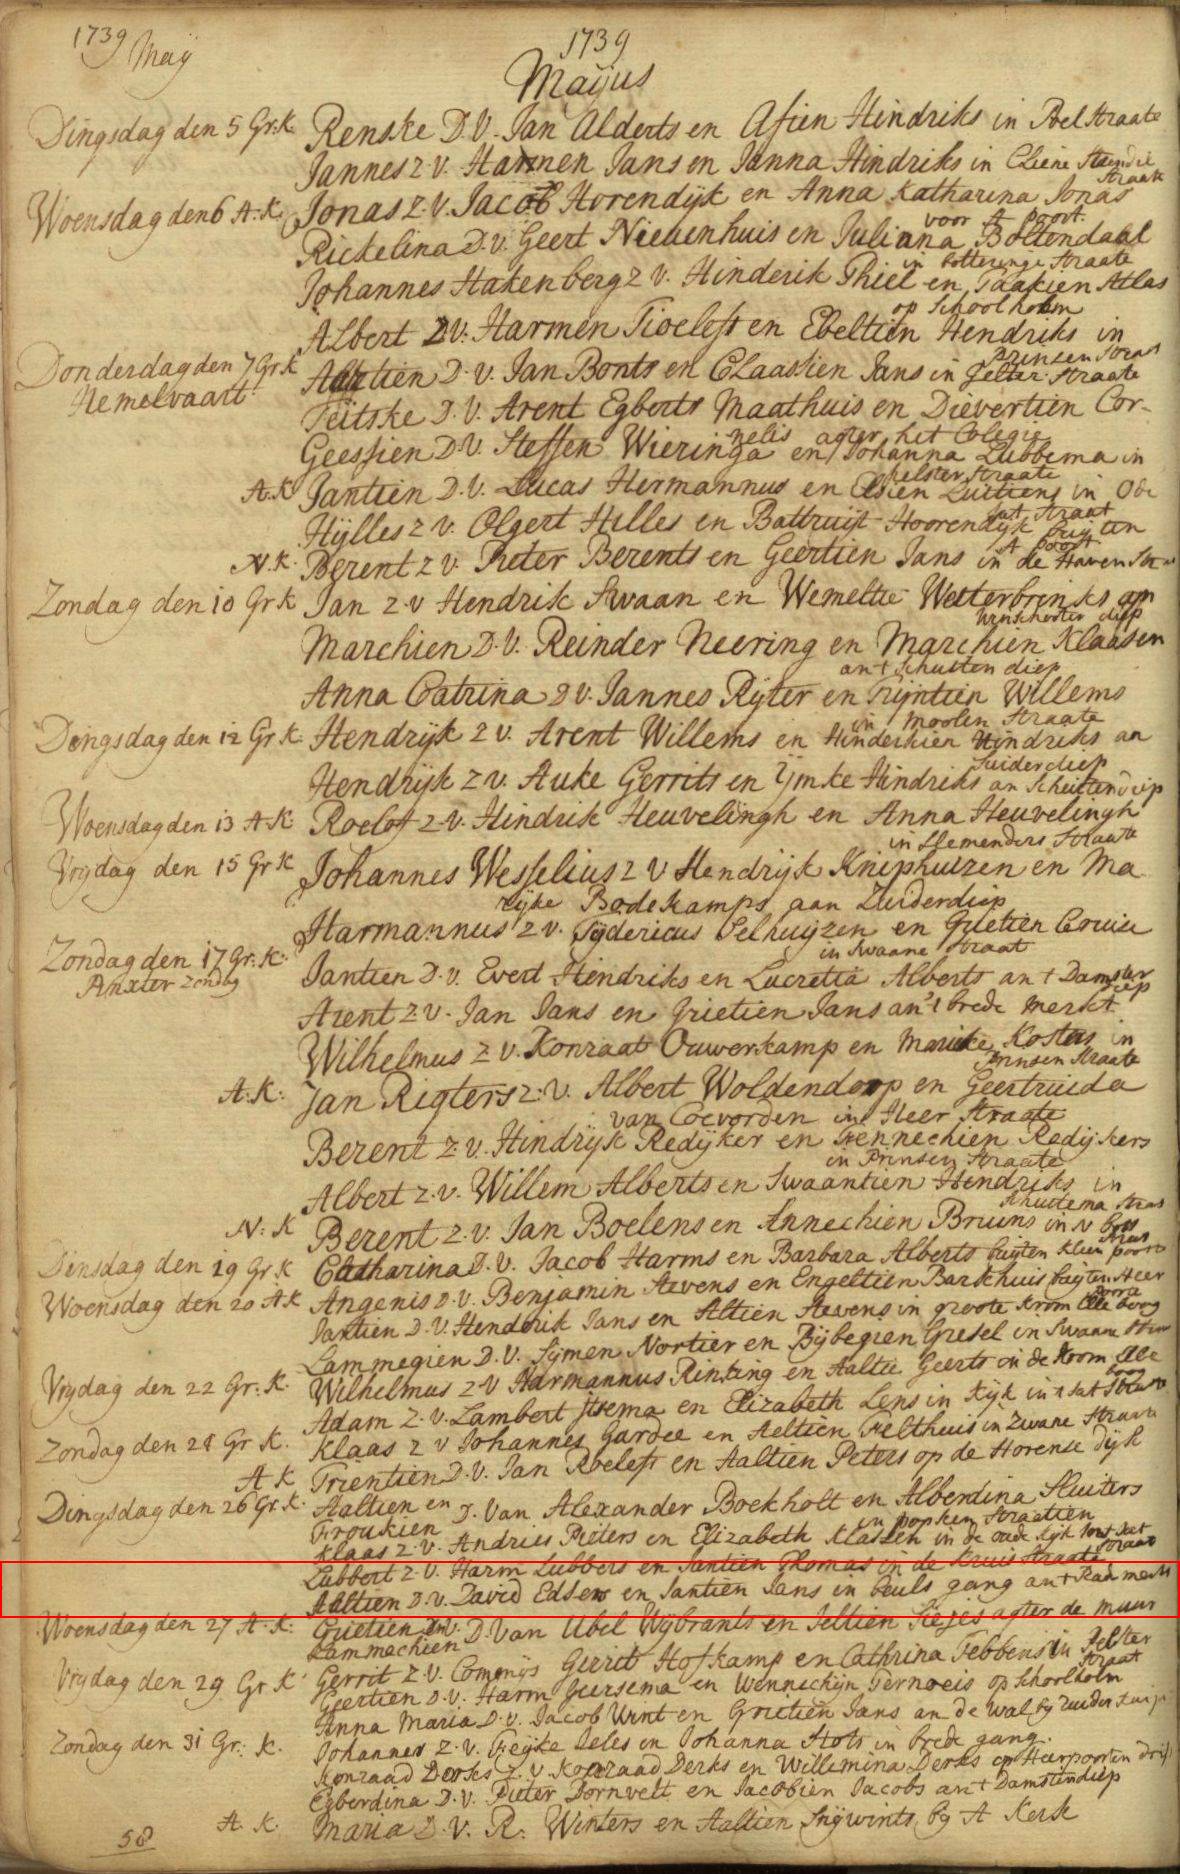 1739 Maÿ
1739
Maÿus
Dingsdag den 5 Gr: K. Renske D. V. Jan Alderts en Asien Hindriks in Poel Straate
Jannes z. v. Harmen Jans en Janna Hindriks in Cleine
Straate
Woensdag den 6 A. K. Jonas z. v. Jacob Horendÿk en Anna Katharina Jonas
voor A poort.
Rickelina D. v. Geert Nieuenhuis en Juliana Boltendaal
in botteringe Straate
Johannes Hakenberg z v. Hinderik Thiel en Taakien Atlas
op Schoolholm
Albert z. v. Harmen Tioelofs en Ebeltien Hendriks in
Prinsen Straat
Donderdag den 7 Gr K Aaltien D. v. Jan Bonts en Claassien Jans in Gelter Straate
Hemelvaart
Teitske D. V. Arent Egberts Maathuis en Dievertien Cor-
nelis agter het Colegie
Geessien D. V. Steffen Wieringa en Johanna Lubbema in
pelster Straate
A. K Jantien D. V. Lucas Hermannus en Elsien Luitiens in Ode
kat Straat
Hÿlles z v. Olgert Hilles en Battruijt Hoorendÿk buÿten
A poort
N. K. Berent z v. Pieter Berents en Geertien Jans in de Haven Str
Zondag den 10 Gr K Jan z. v Hendrik Swaan en Wemeltie Wetterbrinks an
Winschoter diep
Marchien D. V. Reinder Neering en Marchien Klaasen
an t Schuiten diep
Anna Catrina D v. Jannes Rÿter en Trijntien Willems
in Moolen Straate
Dingsdag den 12 Gr K. Hendrÿk z v. Arent Willems en Hinderkien Hindriks an
Suiderdiep
Hendrÿk z v. Auke Gerrits en Ÿmke Hindriks an Schuitendiep
Woensdag den 13 A K. Roelof z. v. Hindrik Heuvelingh en Anna Heuvelingh
in Straate
Vrÿdag den 15 Gr K Johannes Wesselius z v Hendrÿk Kniphuizen en Ma
rijke Bodekamps aan Zuiderdiep
Harmannus z v. Tÿdericus Selhuijzen en Grietien Cruise
in Swaane Straat
Zondag den 17 Gr: K. Jantien D. v. Evert Hindriks en Lucretia Alberts an t Damster
diep
Anxter Zondag
Arent z v. Jan Jans en Grietien Jans an't brede Merkt
Wilhelmus z v. Konraat Ouwerkamp en Marieke Kosters in
Prinsen Straate
A: K: Jan Rigters z: V. Albert Woldendorp en Geertruida
van Coevorden in Heer Straate
Berent z: v. Hindrÿk Redÿker en Fennechien Redÿkers
in Prinsen Straate
Albert z. v. Willem Alberts en Swaantien Hendriks in
Schuitema Straa
N: K Berent z. v. Jan Boelens en Annechien Bruins in N bos
Straat
Dinsdag den 19 Gr K Catharina D. v. Jacob Harms en Barbara Alberts buÿten kleen poort
Woensdag den 20 A K Angenis D. v. Benjamin Aevens en Engeltien Barkhuis buÿten Heer
poort
Jantien D. V. Henderik Jans en Altien Aevens in groote Krom Elleboog
Lammegien D. V. Sÿmen Nortier en Bÿbegien Gresel in Swaane Straa
Vrÿdag den 22 Gr: K. Wilhelmus z V Harmannus Rinting en Aaltie Geerts in de Krom Elle
boog
Adam z. v. Lambert Jtsema en Elizabeth Lens in Rÿk in t kat Straat
Zondag den 28 Gr K. Klaas z v Johannes Gardee en Aeltien Feltheus in Zwane Straate
A K Trientien D. V. Jan Roelefs en Aaltien Peters op de Horense dÿk
Dingsdag den 26 Gr. K. Aaltien en D. van Alexander Boekholt en Alberdina Sluiters
Froukien in popken Straatien
Klaas z. v. Andries Pieters en Elizabeth Klasen in de oude kat
Straat
Lubbert z. v. Harm Lubbers en Jantien Thomas in de kruis Straate
Aaltien D. v. David Edsers en Jantien Jans in beuls gang an t Rad merkt
Woensdag den 27 A. K: Grietien en
Lammechien D. van Ubel Wÿbrants en Jeltien Siejes agter de muur
Vrÿdag den 29 Gr K Gerrit z. v. Comenÿs Gerrit Hofkamp en Cathrina Febbens in Pelster
Straat
Geertien D. v. Harm Geersema en Wennechijn Ternoeis op Schoolholm
Anna Maria D. v. Jacob Wint en Grietien Jans an de wal bÿ Zuider
Zondag den 31 Gr: K. Johannes z. v. Feÿke Jeles en Johanna Hols in brede gang.
Konraad Derks z. v Konraad Derks en Willemina Derks op Heerpoorten drift
Egberdina D. V. Pieter Dornvelt en Jacobien Jacobs an t Damsterdiep
A. K. Maria D. V. R. Winters en Aaltien Snÿwints bÿ A Kerk
58